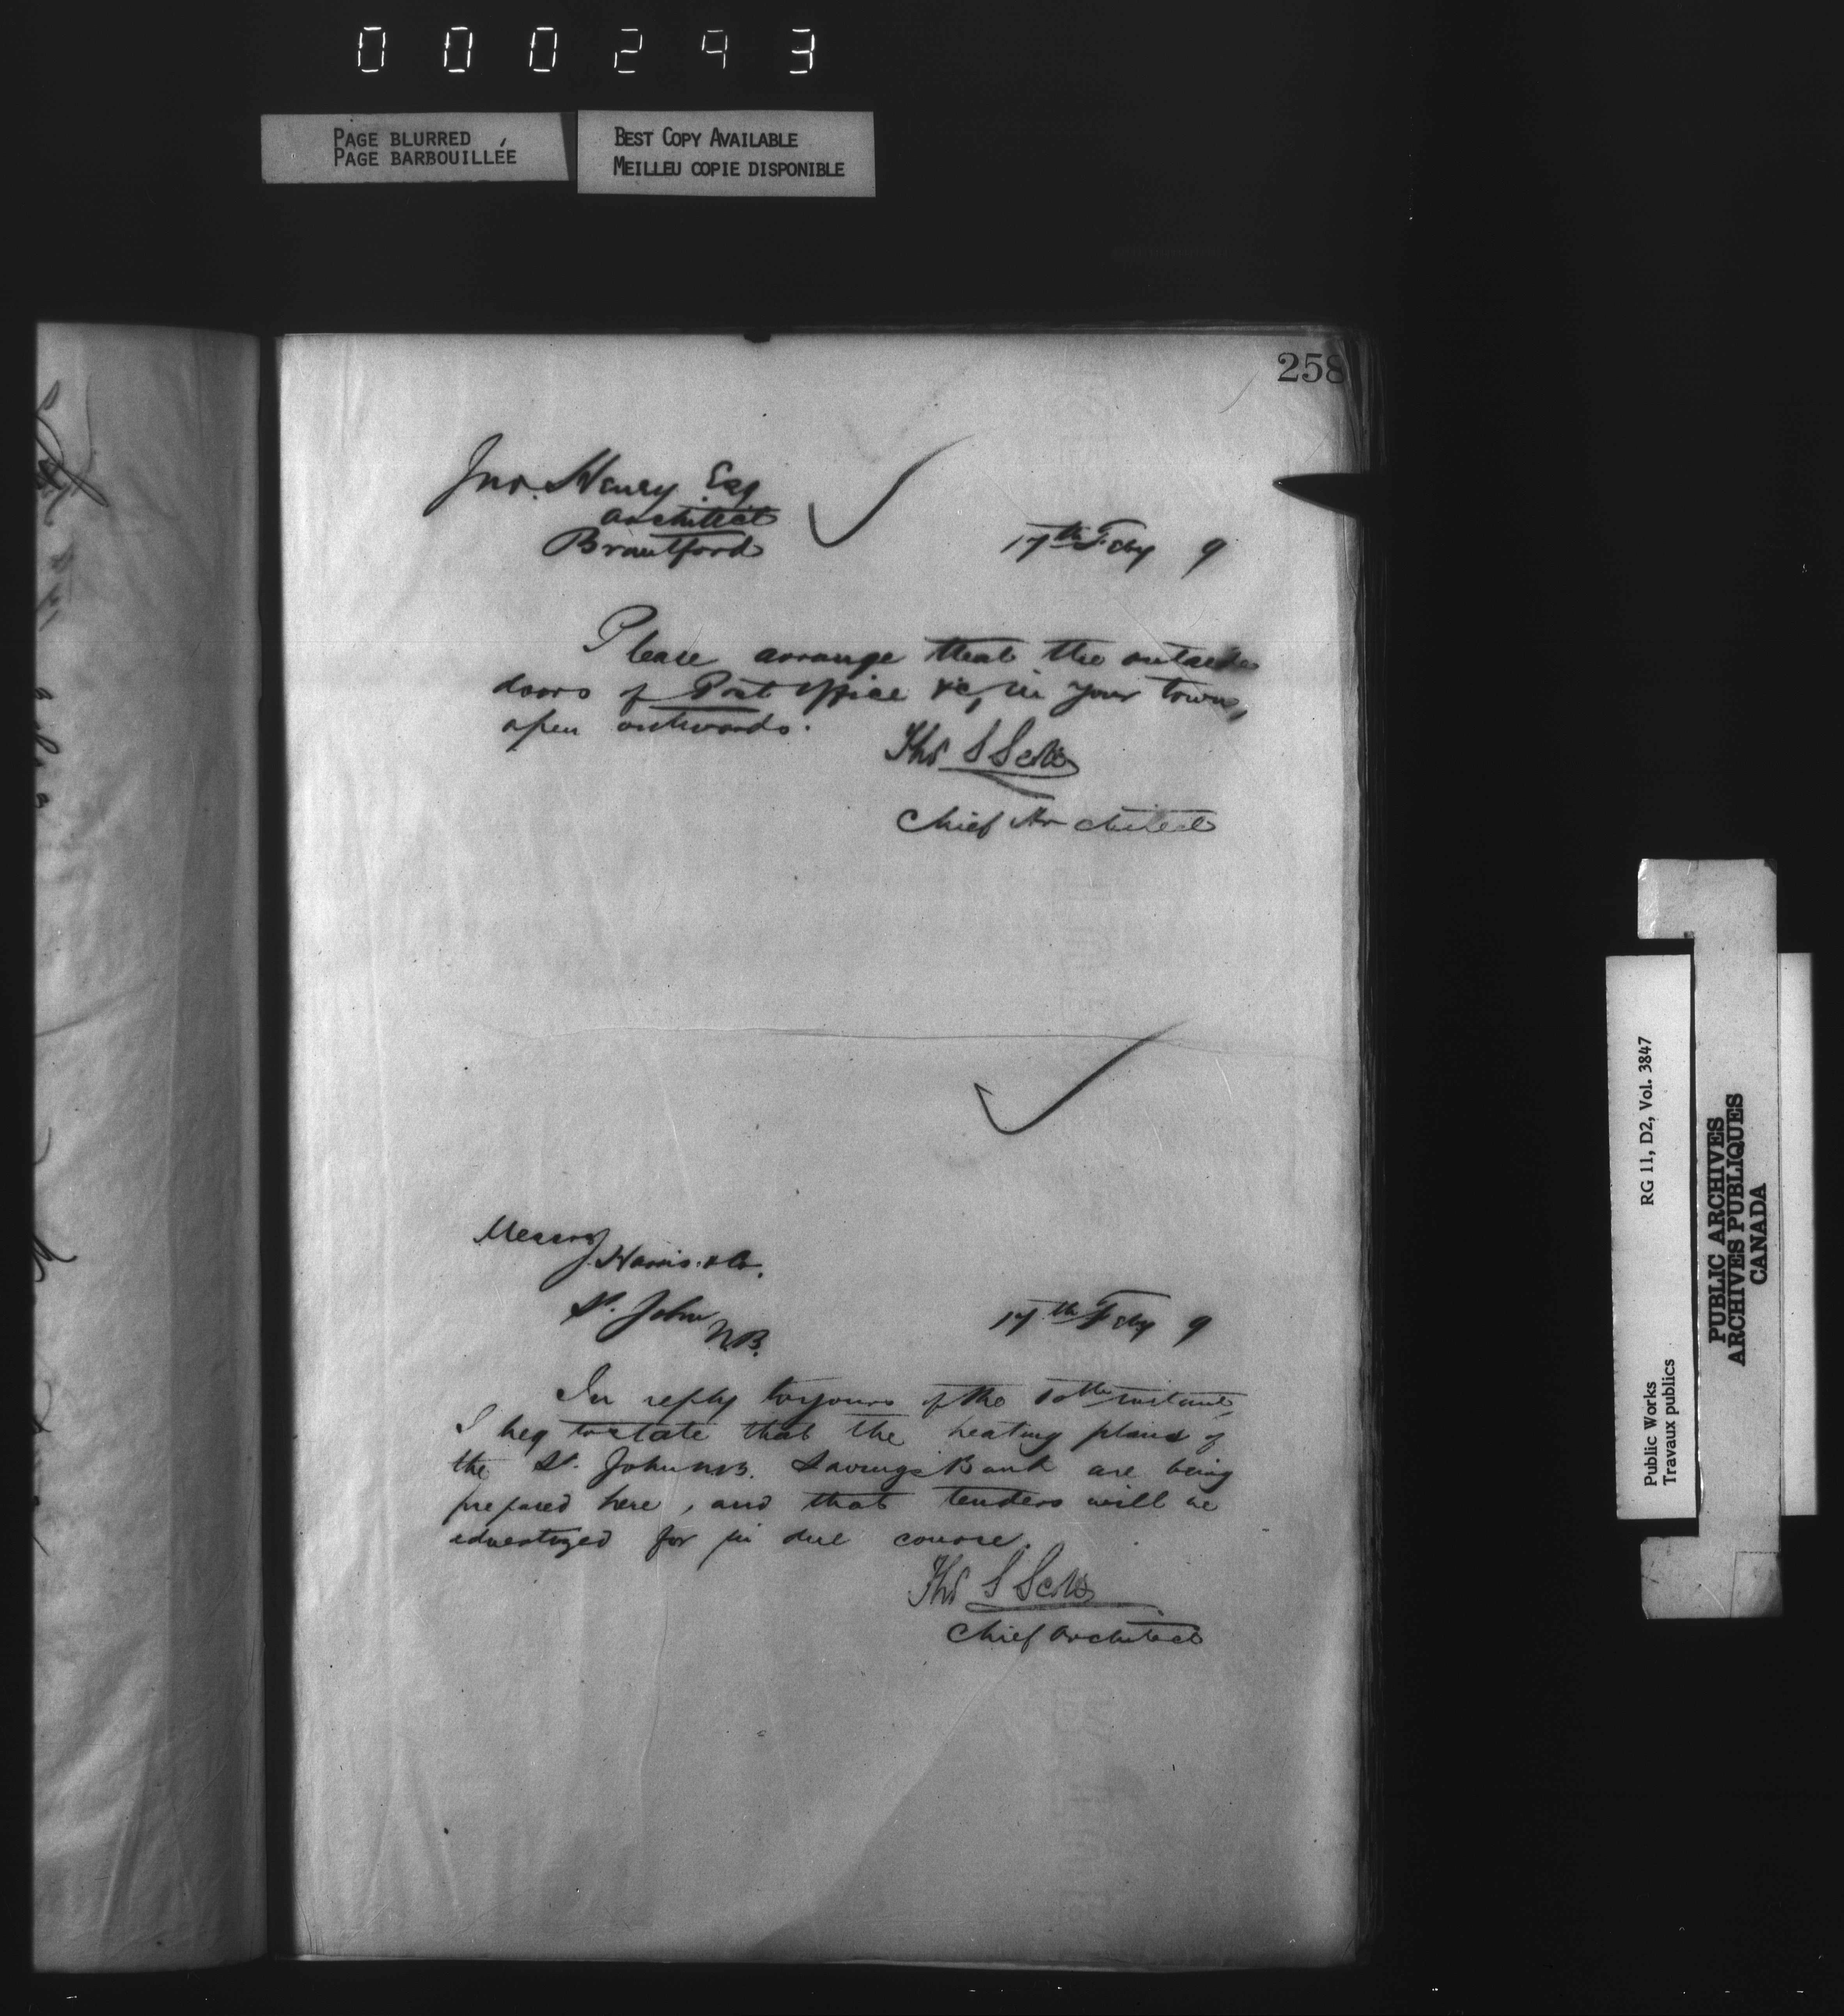 000293
PAGE BLURRED
PAGE BARBOUILLÉE
BEST COPY AVAILABLE
MEILLEU COPIE DISPONIBLE
258
Jno. Henry Esq
Architect
Brantford
17th Feby 9
Please arrange that the outside
doors of Post Office &c, in your town,
open outwards.
Thos S Scott
Chief Architect
Messrs
J. Harris & Co.
St. John
N.B.
17th Feby 9
In reply to yours of the 10th instant,
I beg to state that the heating plans of
the St. John N.B. Savings Bank are being
prepared here, and that tenders will be
advertized for in due course.
Thos S Scott
Chief Architect
Public Works
Travaux publics
RG 11, D2, Vol. 3847
PUBLIC ARCHIVES
ARCHIVES PUBLIQUES
CANADA